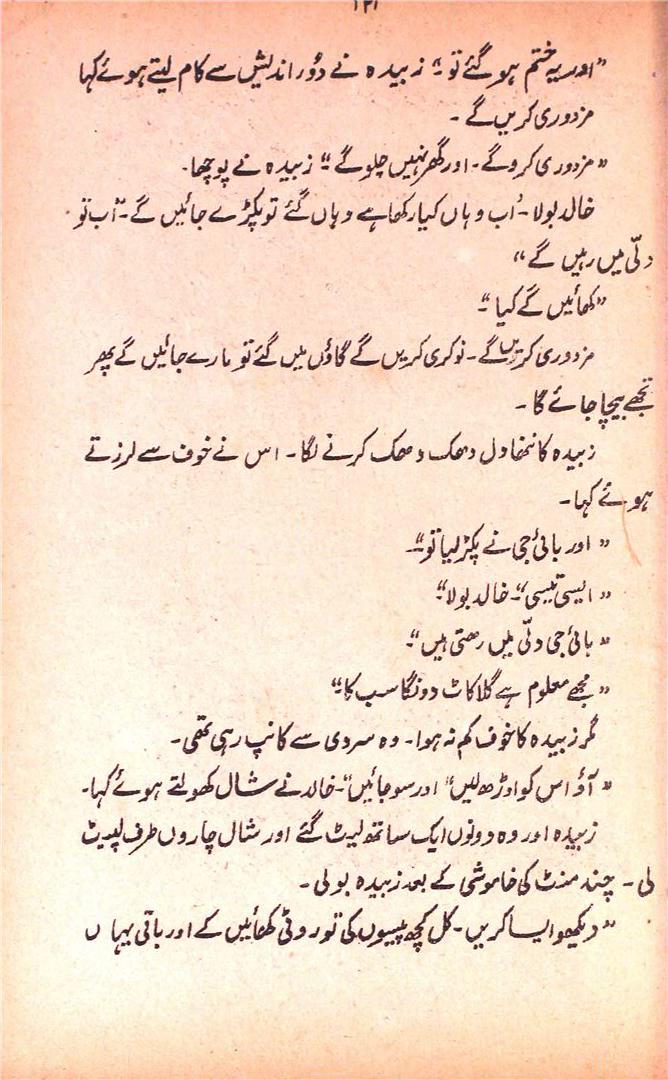 ۱۳۱
”اور یہ ختم ہو گئے تو“ زبیدہ نے دُور اندیشی سے کام لیتے ہوئے کہا
مزدوری کریں گے ۔
”مزدوری کرو گے۔ اور گھر نہیں چلو گے“ زبیدہ نے پوچھا۔
خالد بولا۔ ”اب وہاں کیا رکھا ہے وہاں گئے تو پکڑے جائیں گے۔ اب تو
دلّی میں رہیں گے“
”کھائیں گے کیا“۔
مزدوری کریں گے۔ نوکری کریں گے گاؤں میں گئے تو مارے جائیں گے پھر
تجھے بیچا جائے گا ۔
زبیدہ کا ننھا دل دھک دھک کرنے لگا۔ اس نے خوف سے لرزتے
ہوئے کہا۔
”اور بائی جی نے پکڑ لیا تو“۔
”ایسی تیسی“۔ خالد بولا“۔
”بائی جی دلّی میں رہتی ہیں“۔
”مجھے معلوم ہے گلا کاٹ دونگا سب کا“۔
مگر زبیدہ کا خوف کم نہ ہوا۔ وہ سردی سے کانپ رہی تھی۔
”آؤ اس کو اوڑھ لیں“ اور سو جائیں“۔ خالد نے شال کھولتے ہوئے کہا۔
زبیدہ اور وہ دونوں ایک ساتھ لیٹ گئے اور شال چاروں طرف لپیٹ
لی ۔ چند منٹ کی خاموشی کے بعد زبیدہ بولی۔
”دیکھو ایسا کریں۔ کل کچھ پیسوں کی تو روٹی کھائیں گے اور باقی یہاں